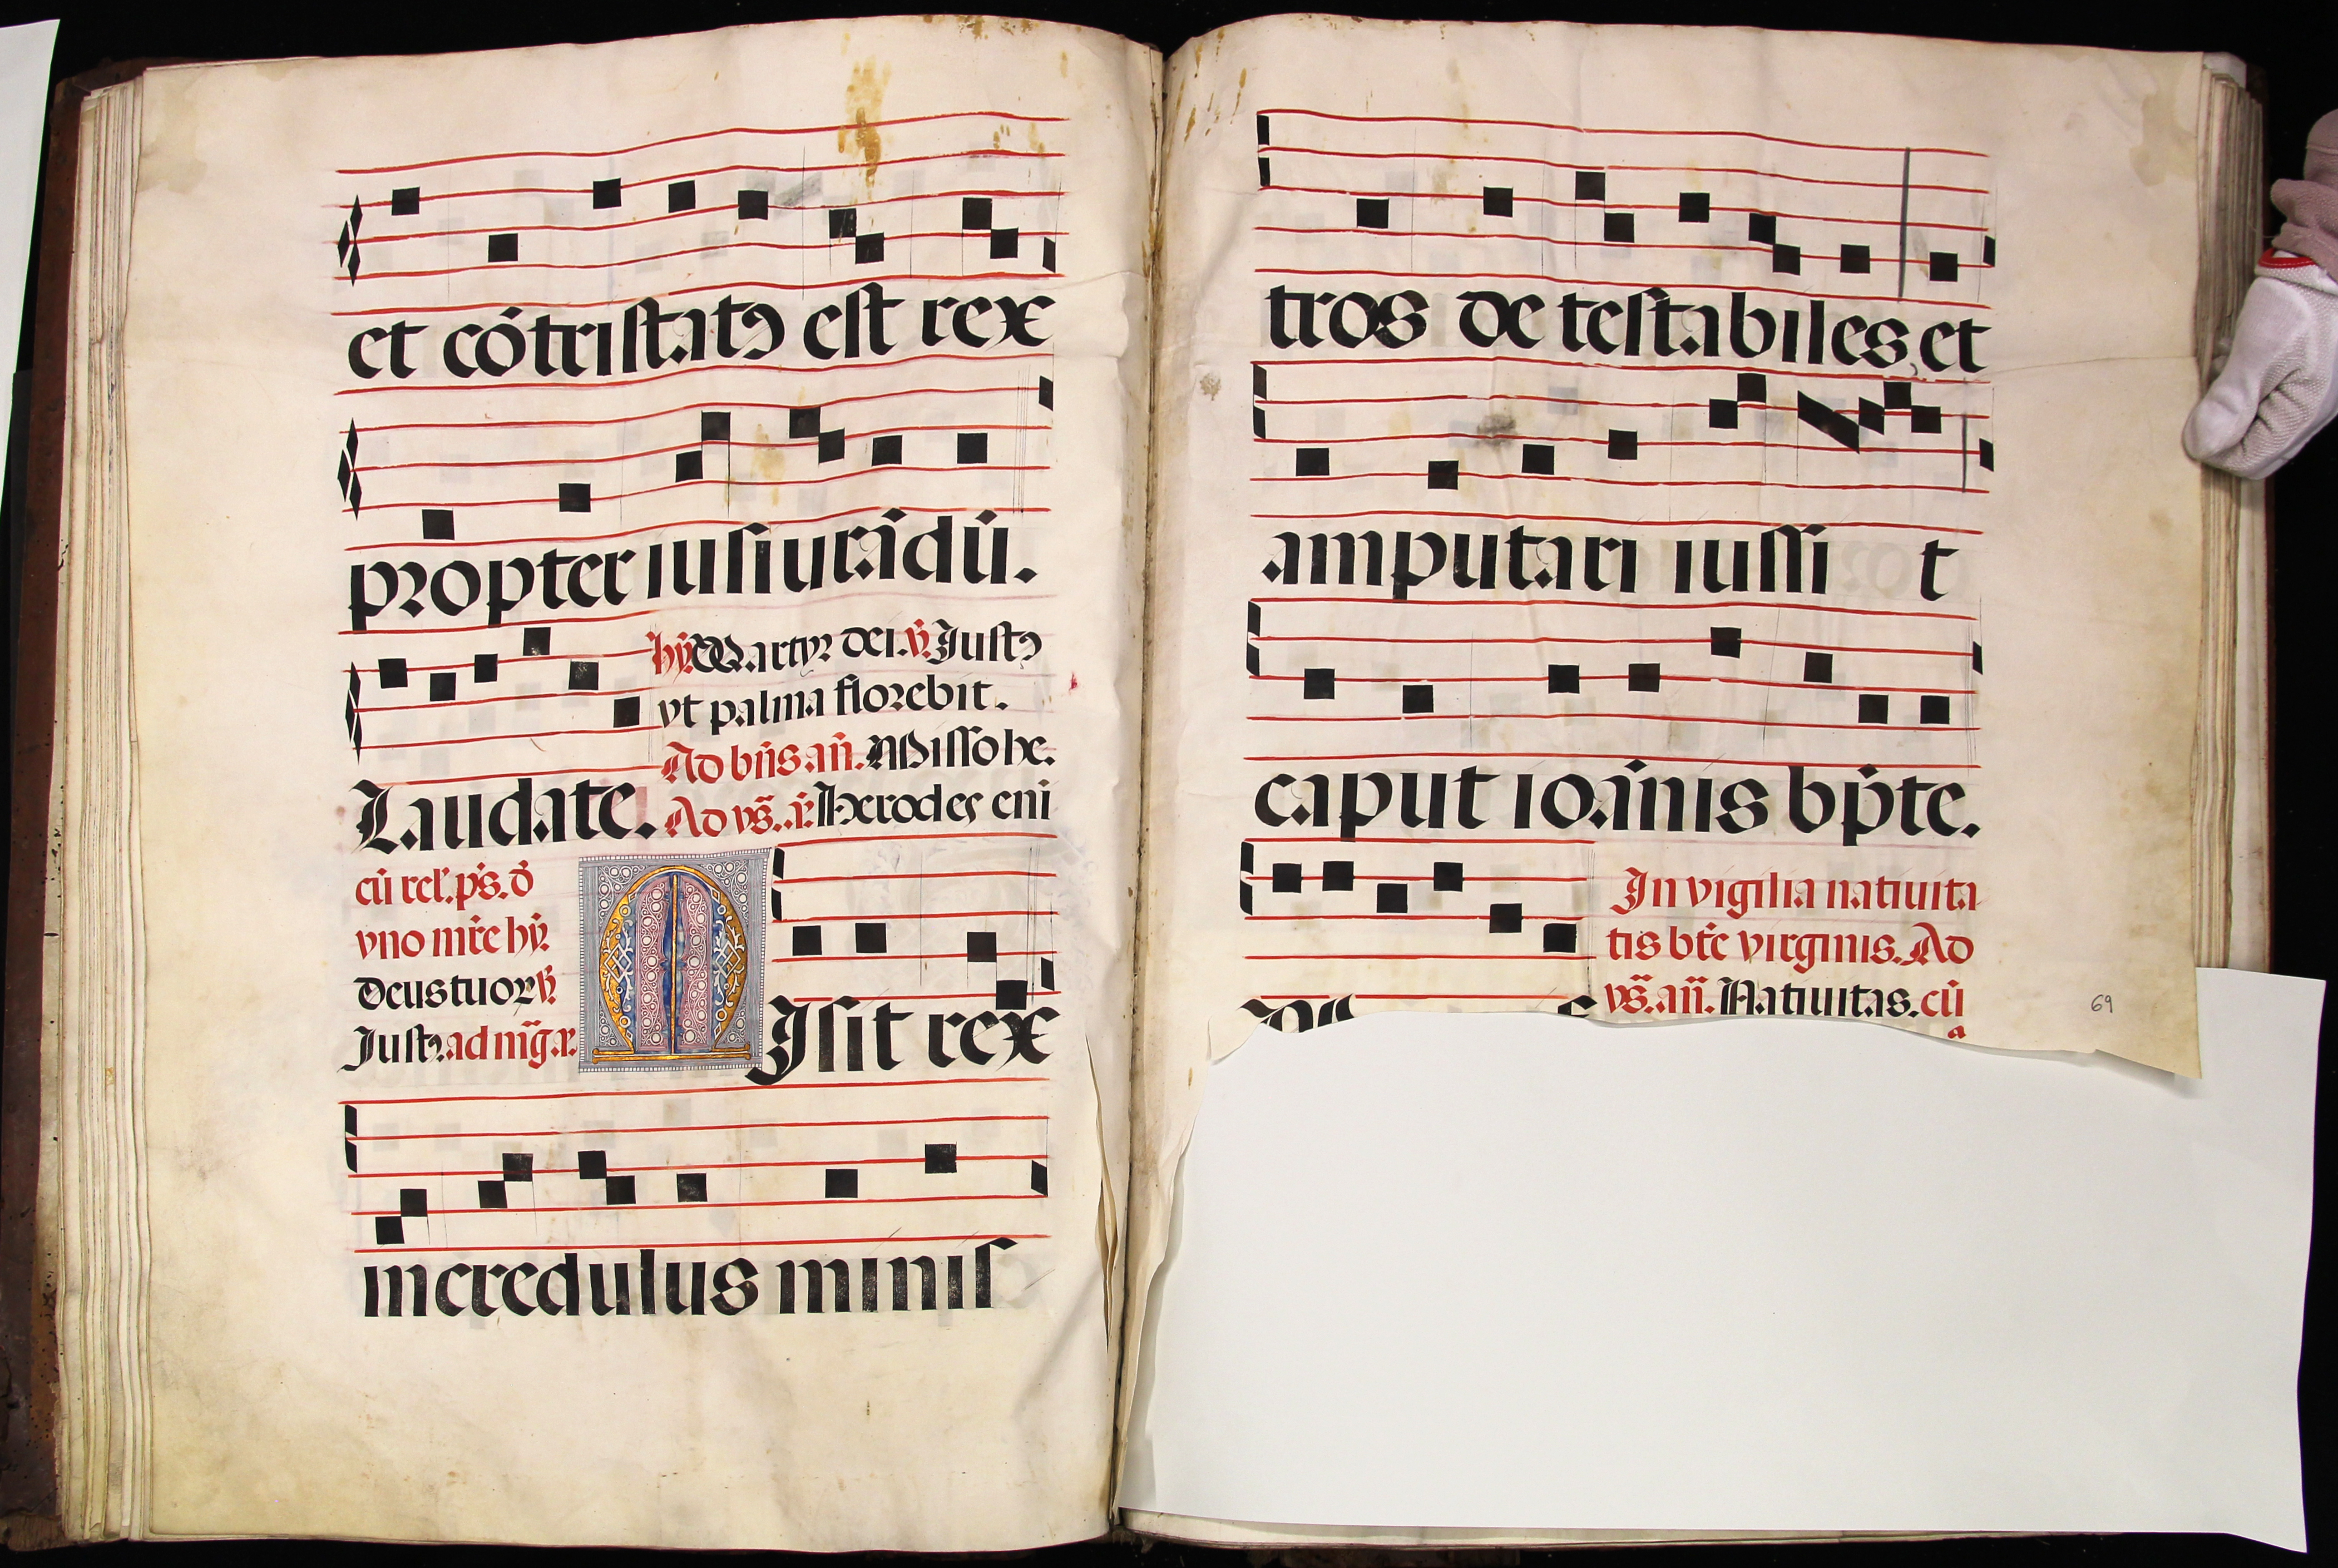 et cōtristatꝰ est rex
propter iusiurādū.
hȳ. Martyr dei. ꝟ. Justꝰ
vt palma florebit.
Ad bn̄s an̄. Misso he.
Laudate. Ad vs̄. a. Herodes eni
cū rel'. ps. d̄
vno mr̄e hȳ.
Deus tuoꝝ ꝟ.
Justꝰ. ad mḡ. a.
MIsit rex
incredulus minis
tros detestabiles, et
amputari iussi t
caput ioānis bp̄te.
In vigilia natiuita
tis btē virginis. Ad
vs̄. an̄. Natiuitas. cū
69